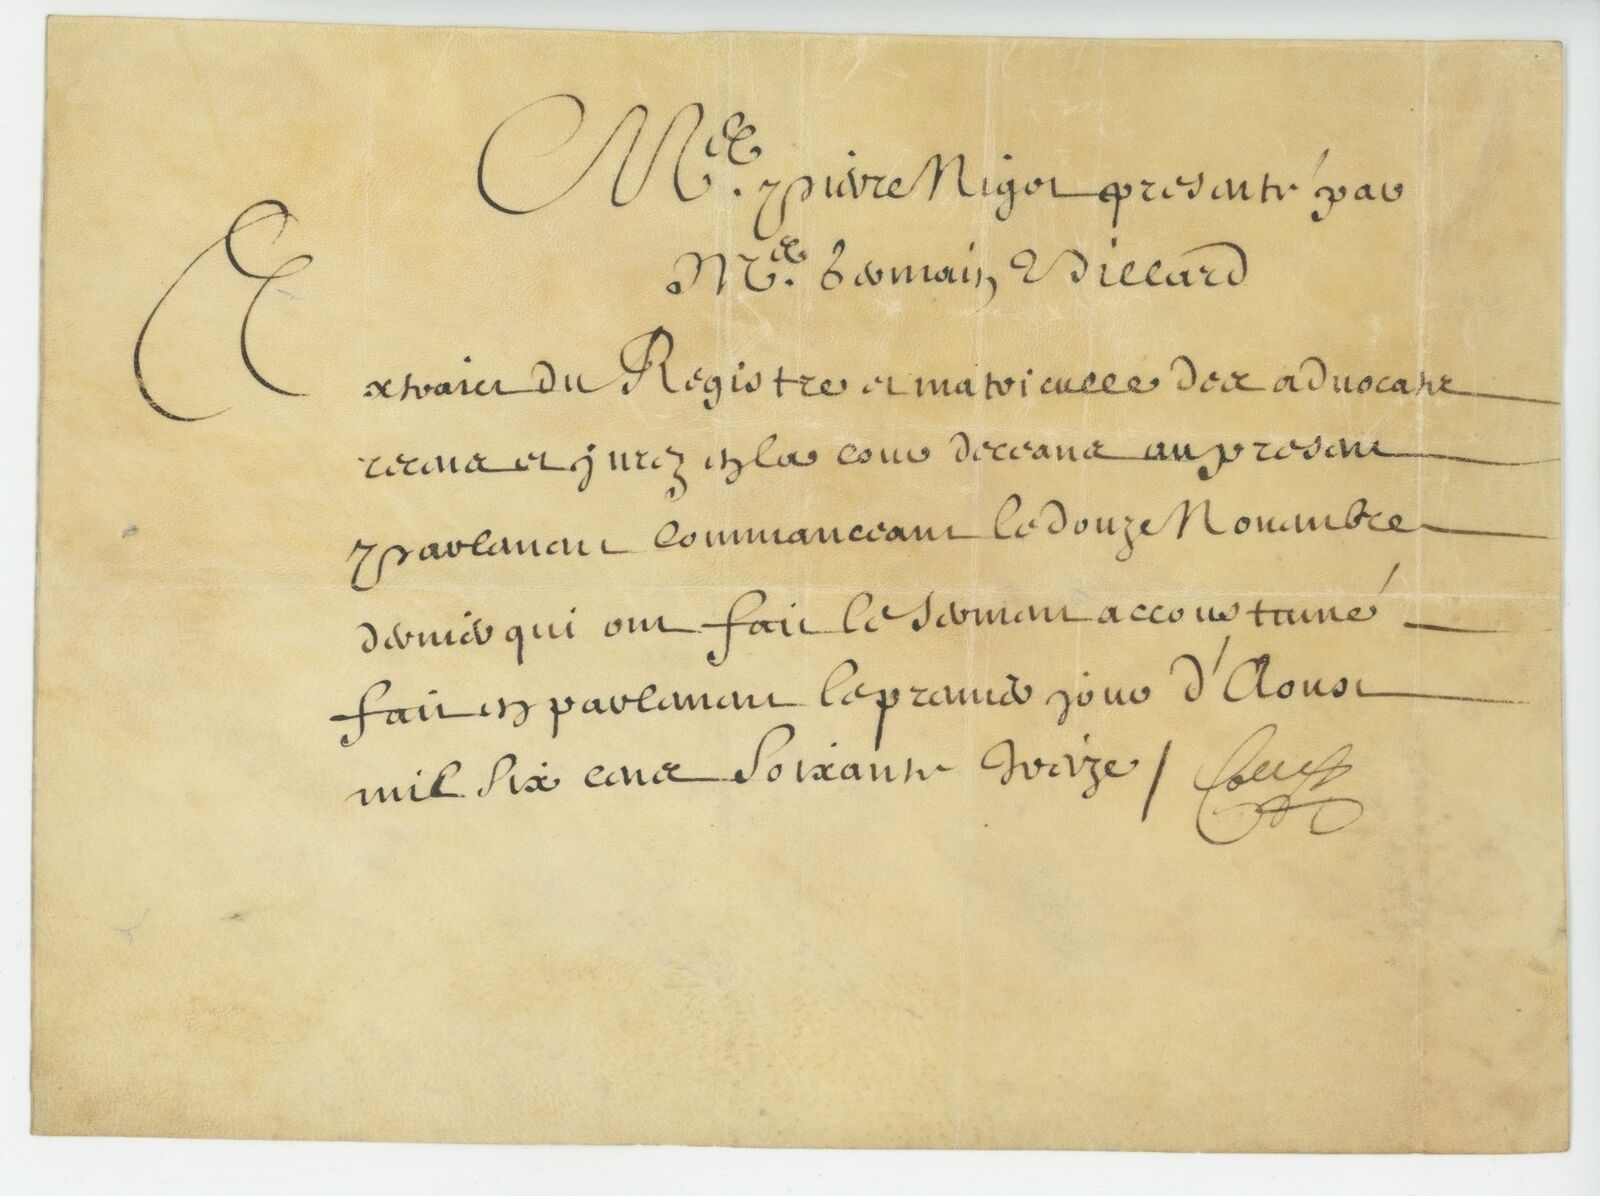 Me. Pierre Nigot presenté par
Me. Germain Billard
Extraict du Registre et matriculle des advocatz
receus et jurez en la cour de ceans au present
parlement commanceant le douze Novembre
dernier qui ont faict le serment accoustumé
faict en parlement le premier jour d'Aoust
mil six cens soixante treize /